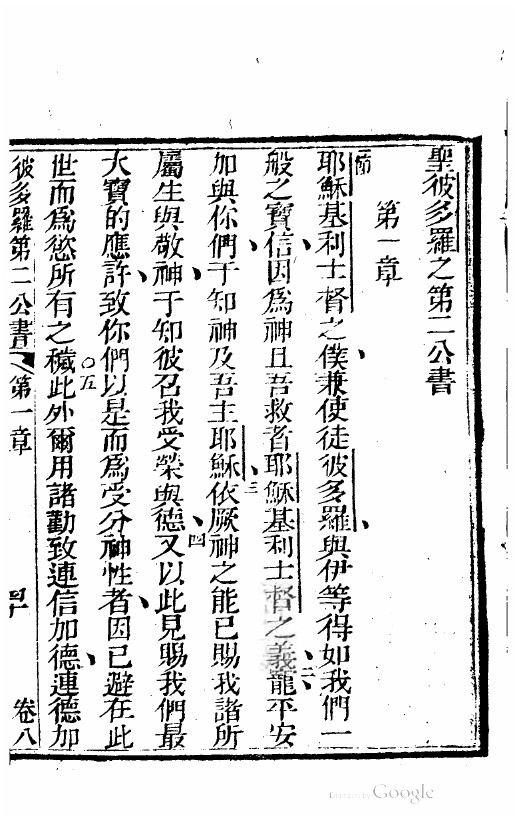 聖彼多羅之第二公書
第一章
一節
耶穌基利士督之僕兼使徒彼多羅、與伊等得如我們一
般之寶信、因爲神且吾救者耶穌基利士督之義、二寵、平安
加與你們、于知神、及吾主耶穌、三依厥神之能、已賜我諸所
屬生與敬神、于知彼召我受榮與德、四又以此見賜我們最
大寶的應許、致你們以是而爲受分神性者、因已避在此
世而爲慾所有之穢、○五此外爾用諸勤致連信加德、連德加
彼多羅第二公書 第一章 四十 卷八
Digitized by Google